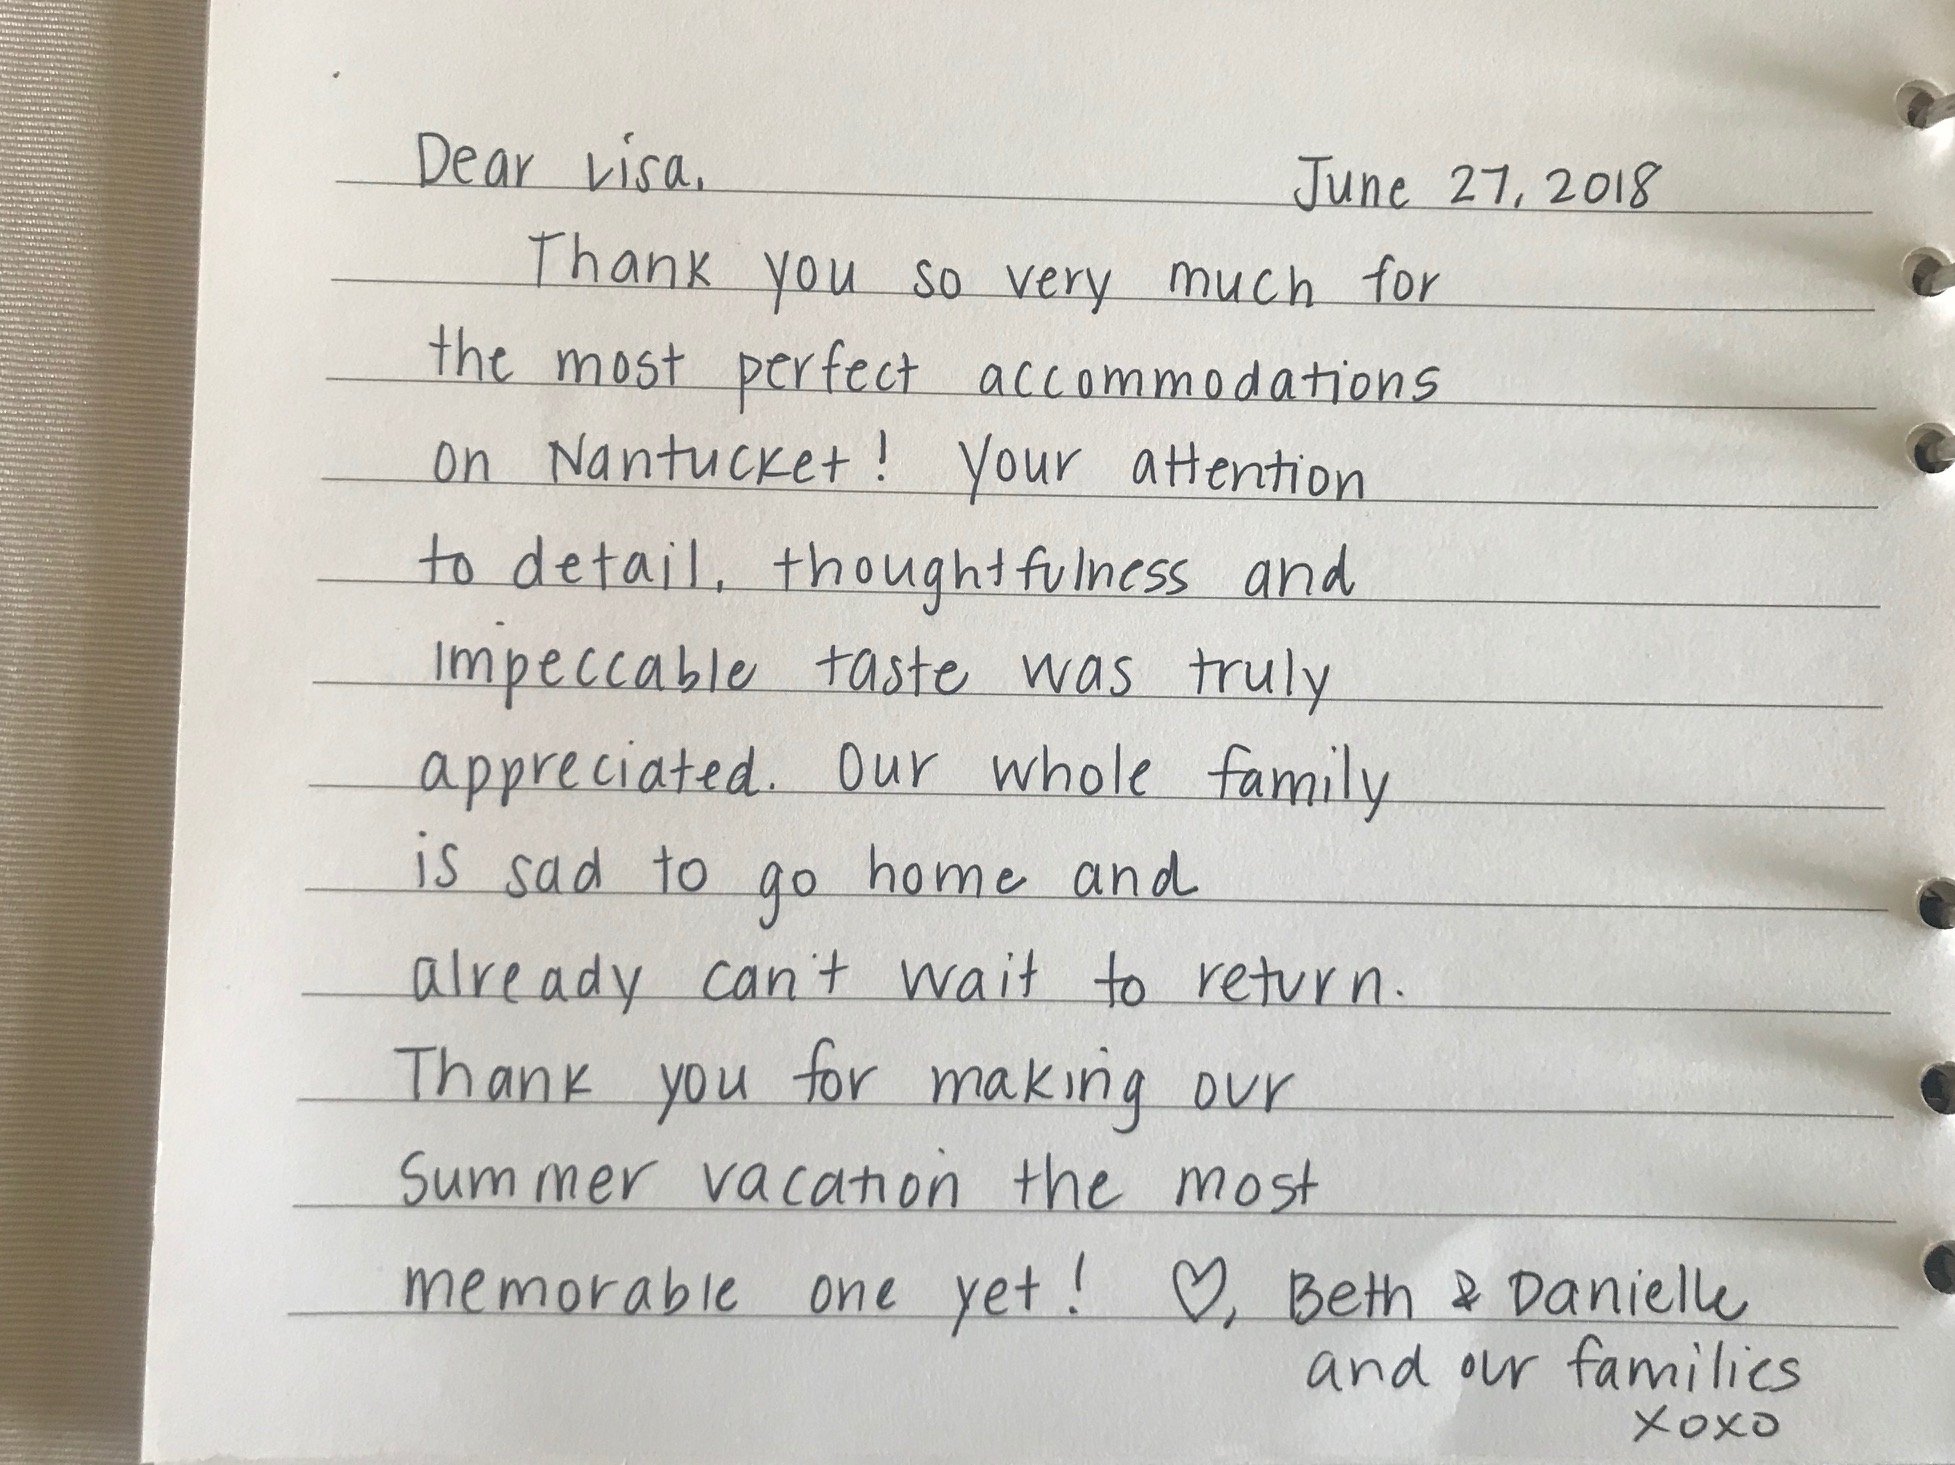 Dear Lisa, June 27, 2018
Thank you so very much for
the most perfect accommodations
on Nantucket! Your attention
to detail, thoughtfulness and
impeccable taste was truly
appreciated. Our whole family
is sad to go home and
already can't wait to return.
Thank you for making our
summer vacation the most
memorable one yet! ♡, Beth & Danielle
and our families
xoxo